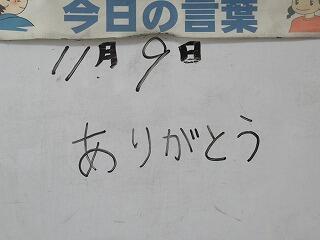 今日の言葉
11月9日
ありがとう